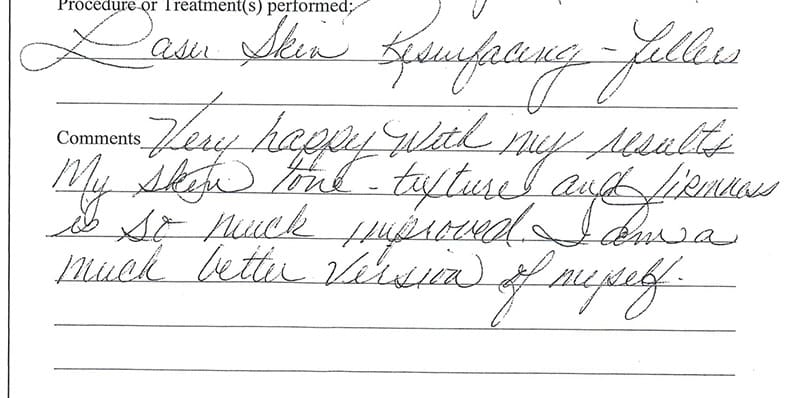 Procedure or Treatment(s) performed:
Laser Skin Resurfacing - fillers
Comments Very happy with my results
My skin tone - texture and firmness
is so much improved. I am a
much better version of myself.